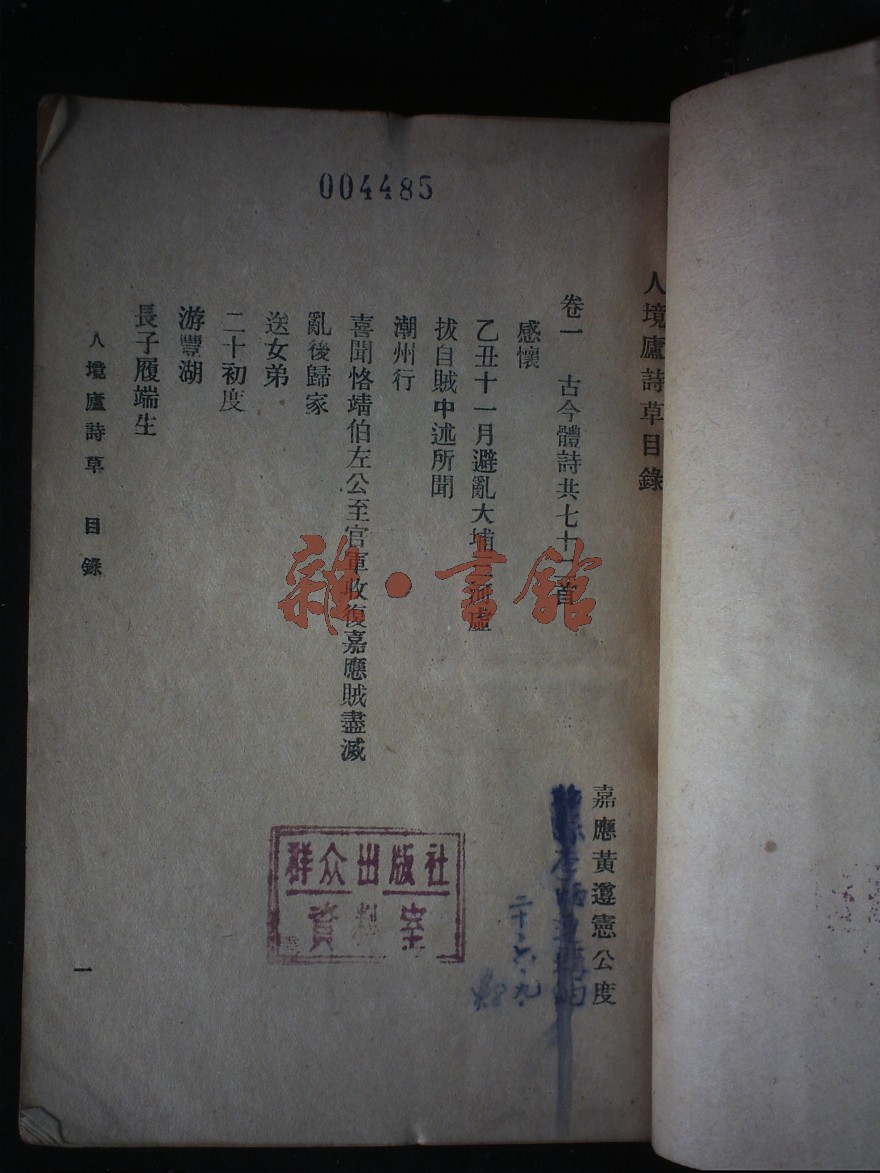 004485
人境廬詩草目錄
嘉應黃遵憲公度
卷一 古今體詩共七十 首
感懷
乙丑十一月避亂大埔三河虛
拔自賊中述所聞
潮州行
喜聞恪靖伯左公至官軍收復嘉應賊盡滅
亂後歸家
送女弟
二十初度
游豐湖
長子履端生
人境廬詩草 目錄
一
群众出版社
資料室
二十、六、九、
雜·書館